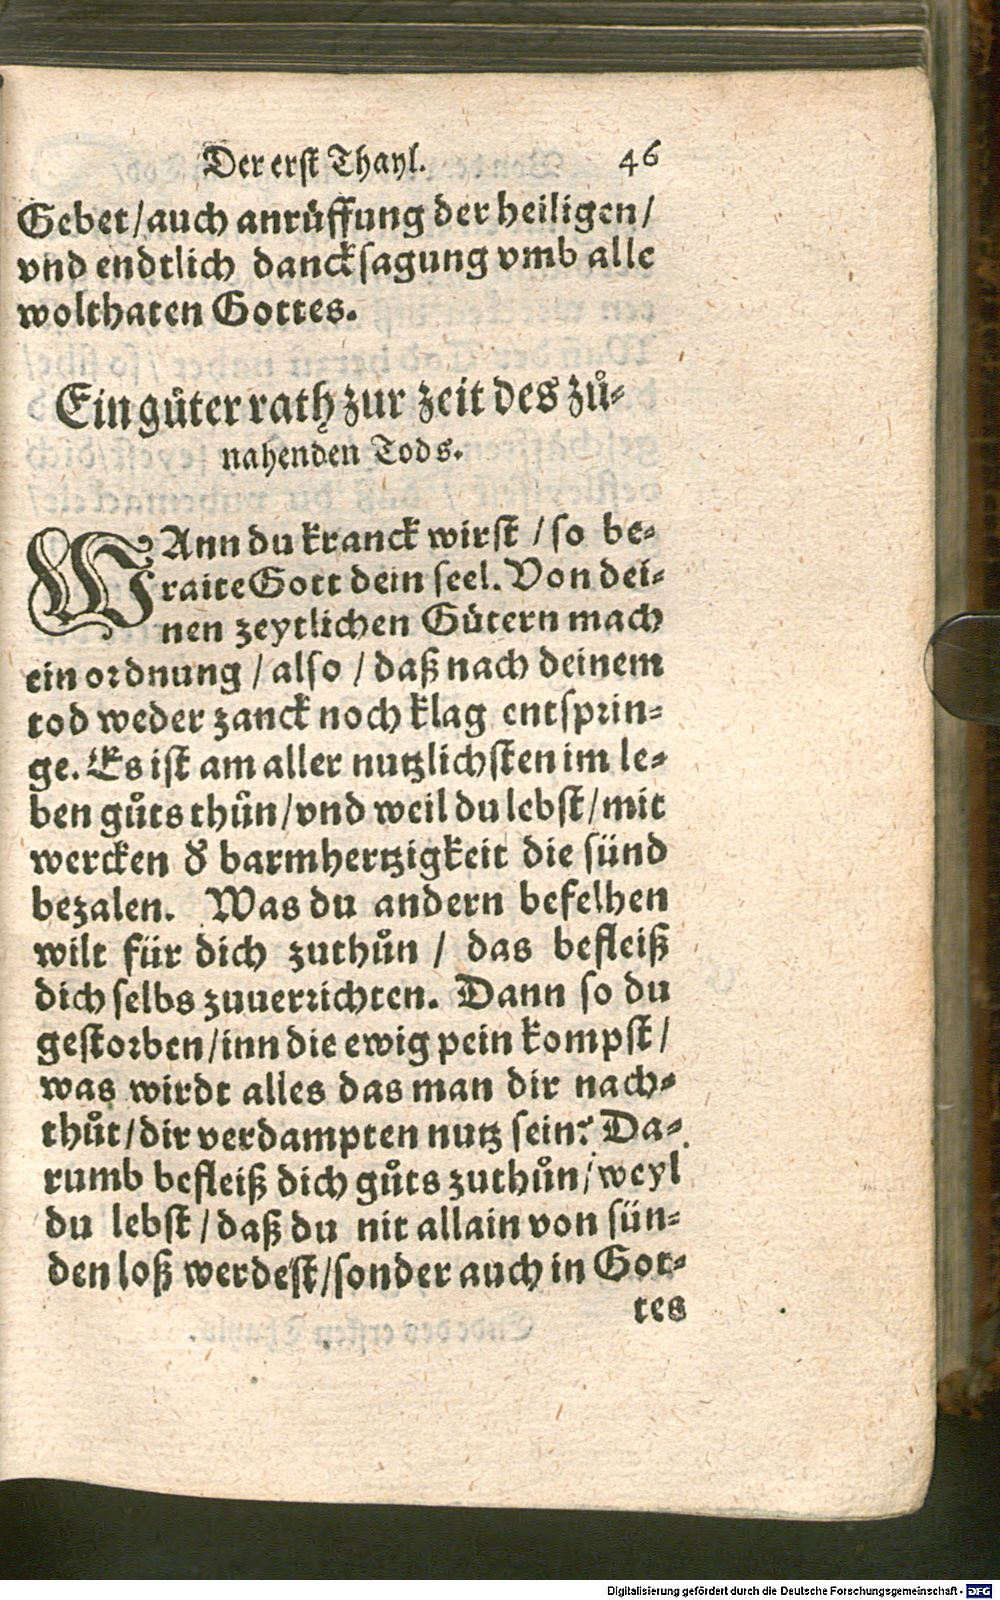 Der erst Thayl. 46
Gebet/auch anrüffung der heiligen/
vnd endtlich dancksagung vmb alle
wolthaten Gottes.
Ein gůter rath zur zeit des zů-
nahenden Tods.
WAnn du kranck wirst / so be-
raite Gott dein seel. Von dei-
nen zeytlichen Gütern mach
ein ordnung / also / daß nach deinem
tod weder zanck noch klag entsprin-
ge. Es ist am aller nutzlichsten im le-
ben gůts thůn/vnd weil du lebst/mit
wercken d' barmhertzigkeit die sünd
bezalen. Was du andern befelhen
wilt für dich zuthůn / das befleiß
dich selbs zuuerrichten. Dann so du
gestorben/inn die ewig pein kompst/
was wirdt alles das man dir nach-
thůt/dir verdampten nutz sein? Da-
rumb befleiß dich gůts zuthůn/weyl
du lebst/daß du nit allain von sün-
den loß werdest/sonder auch in Got-
tes
Digitalisierung gefördert durch die Deutsche Forschungsgemeinschaft - DFG